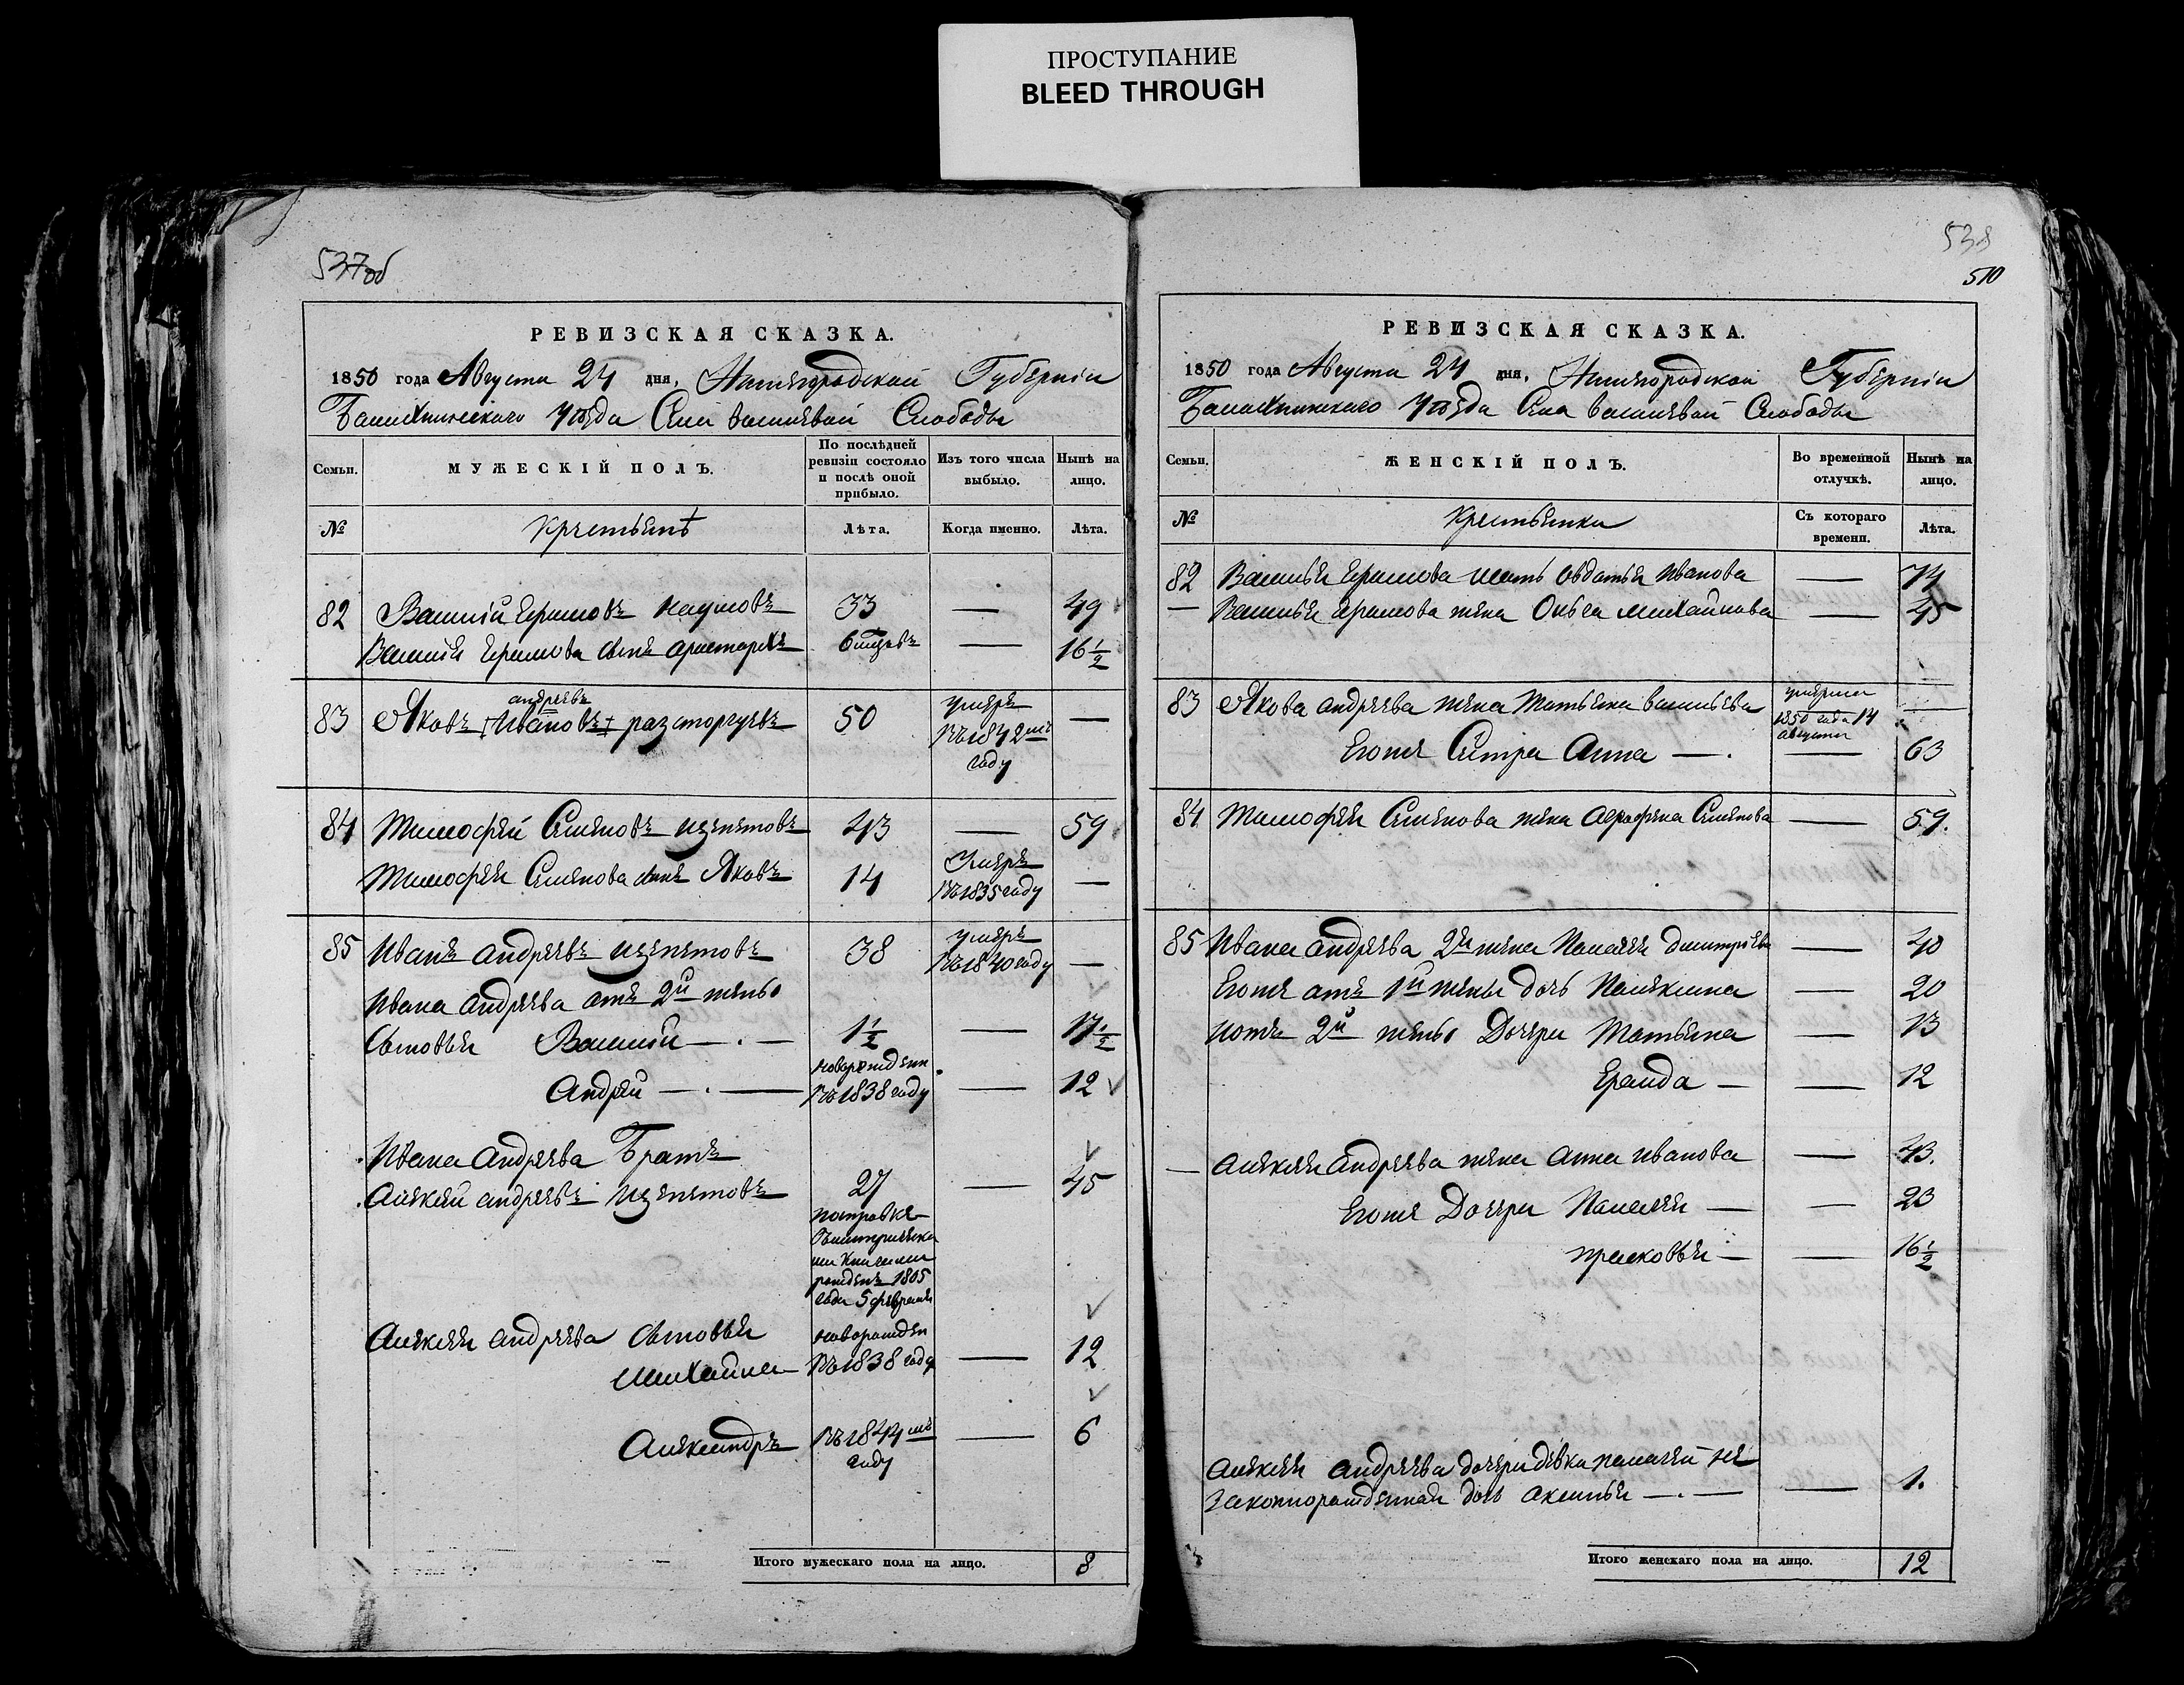 ПРОСТУПАНИЕ
BLEED THROUGH
537об
РЕВИЗСКАЯ СКАЗКА.
1850 года Августа 24 дня, Нижегородской Губернiи
Балахнинскаго Уѣзда Села Василевой Слободы
Семьи.
МУЖЕСКІЙ ПОЛЪ.
По послѣдней ревизіи состояло и послѣ оной прибыло.
Изъ того числа выбыло.
Нынѣ на лицо.
№
Крестьянъ
Лѣта.
Когда именно.
Лѣта.
82 Василiй Ермиловъ Наумовъ 33 — 49
Василья Ермилова сынъ Аристархъ — 16½
андреевъ
83 Яковъ Ивановъ разторгуевъ 50 умеръ въ 1842мъ году —
84 Тимофей Семеновъ 43 — 59
Тимофея Семенова сынъ Яковъ 14 Умеръ въ 1835 году —
85 Иванъ андреевъ 38 умеръ въ 1840 году —
Ивана андреева отъ 2й жены
Сыновья Василiй 1½ — 17½
Андрей новорожденъ въ 1838 году — 12
Ивана Андреева Братъ
Алексей андреевъ 27 — 45
рожденъ 1805
года 5 февраля
Алексея андреева сыновья новорожден
Михайла въ 1838 году — 12
Александръ въ 1844мъ году — 6
Итого мужескаго пола на лицо. 8
538
510
РЕВИЗСКАЯ СКАЗКА.
1850 года Августа 24 дня, Нижегородской Губернiи
Балахнинскаго Уѣзда Села Василевой Слободы
Семьи.
ЖЕНСКІЙ ПОЛЪ.
Во временной отлучкѣ.
Нынѣ на лицо.
№
Крестьянки
Съ котораго времени.
Лѣта.
82 Василья Ермилова мать Авдотья Иванова — 74
— Василья Ермилова жена Ольга Михайлова — 45
83 Якова андреева жена Татьяна Васильева умерла 1850 года 14 августа —
Егоже Сестра Анна — 63
84 Тимофея Семенова жена Аграфена Семенова — 59.
85 Ивана андреева 2я жена Пелагея Дмитрiева — 40
Егоже отъ 1й жены дочь — 20
Иотъ 2й жены Дочери Татьяна — 13
— 12
— Алексея Андреева жена Анна Иванова — 43.
Егоже Дочери Пелагея — 23
Прасковья — 16½
Алексея Андреева дочери девки пелагеи не
законнорожденная дочь Аксинья — 1.
Итого женскаго пола на лицо. 12